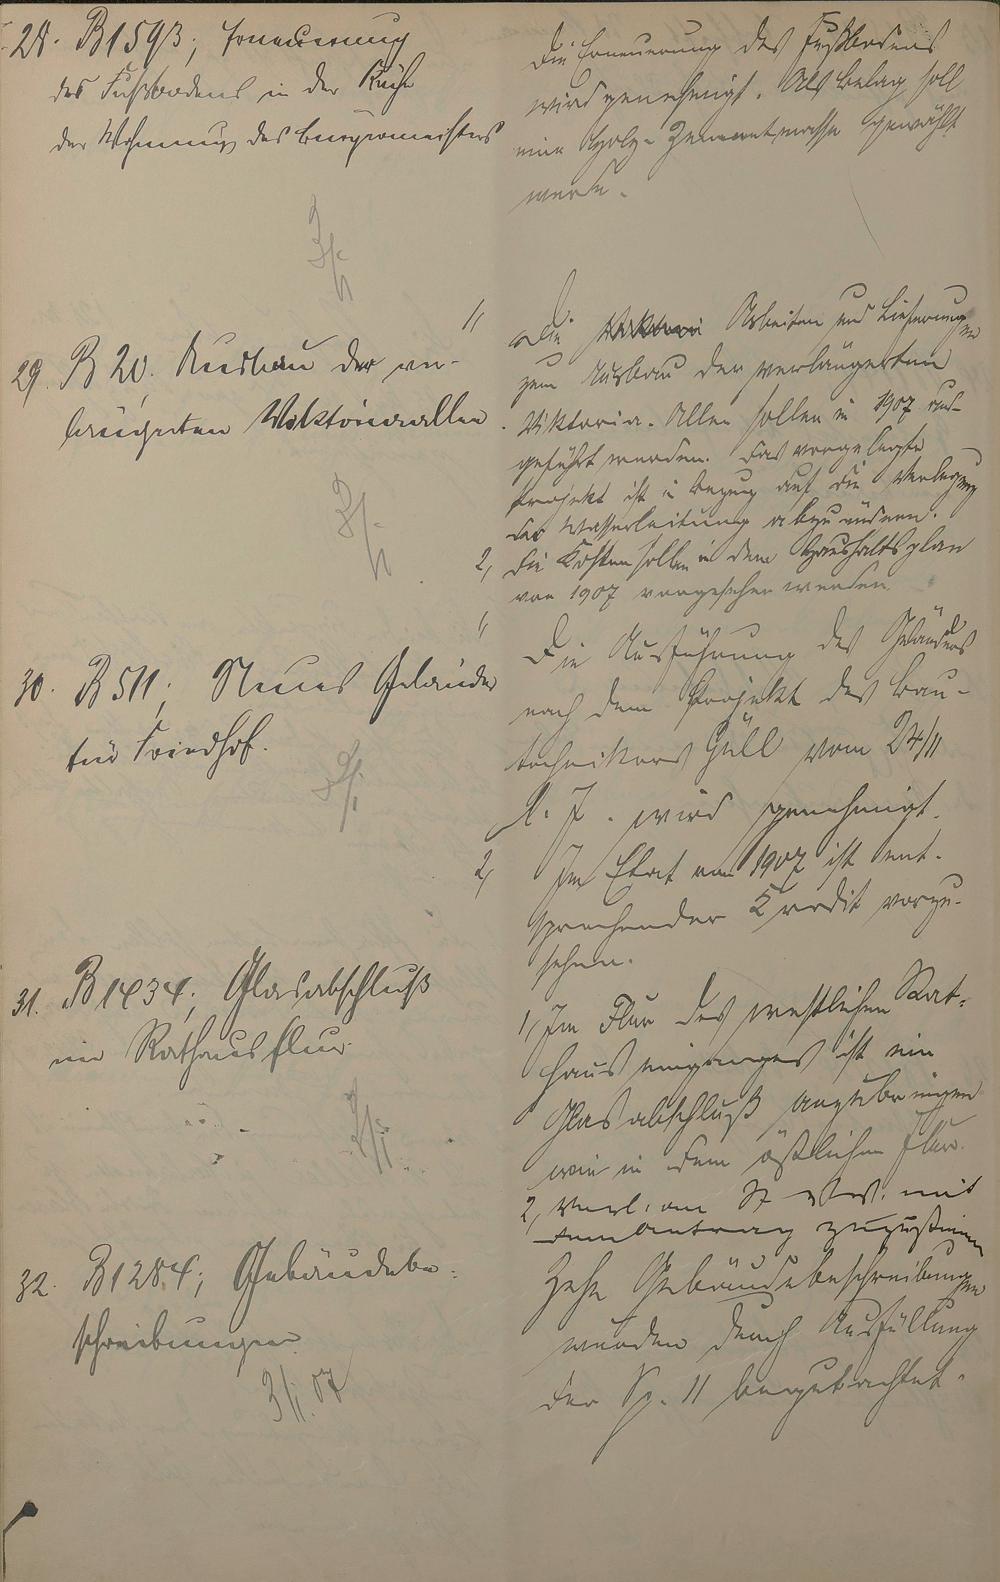 28. B 1593; Erneuerung
des Fußbodens in der Küche
der Wohnung des Burgermeisters
Die Erneuerung des Fußbodens
wird genehmigt. Als Belag soll
eine Holz-Zementmasse gewählt
werde.
29. B 20. Ausbau der ver-
längerten Viktoriaallee
1, Die Arbeiten und Lieferungen
zum Ausbau der verlängerten
Viktoria-Allee sollen in 1907 aus-
geführt werden. Das vorgelegte
Projekt ist in Bezug auf die Verlegung
der Wasserleitung abzuändern.
2, Die Kosten sollen in dem Haushaltsplan
von 1907 vorgesehen werden.
30. B 511; Neues Geländer
für Friedhof.
1, Die Ausführung des Geländers
nach dem Projekt des Bau-
technikers Güll vom 24/11
l. J. wird genehmigt.
2, Im Etat von 1907 ist ent-
sprechender Kredit vorzu-
sehen.
31. B 1434; Glasabschluß
im Rathausflur.
1, Im Flur des westlichen Rat-
hauseinganges ist ein
Glasabschluß anzubringen
wie in dem östlichen Flur.
2, mit
dem Antrag zuzustimmen
32. B 1284; Gebäudebe-
schreibungen
3/1. 07
Zehn Gebäudebeschreibungen
wurden durch Ausfüllung
der Sp. 11 begutachtet.